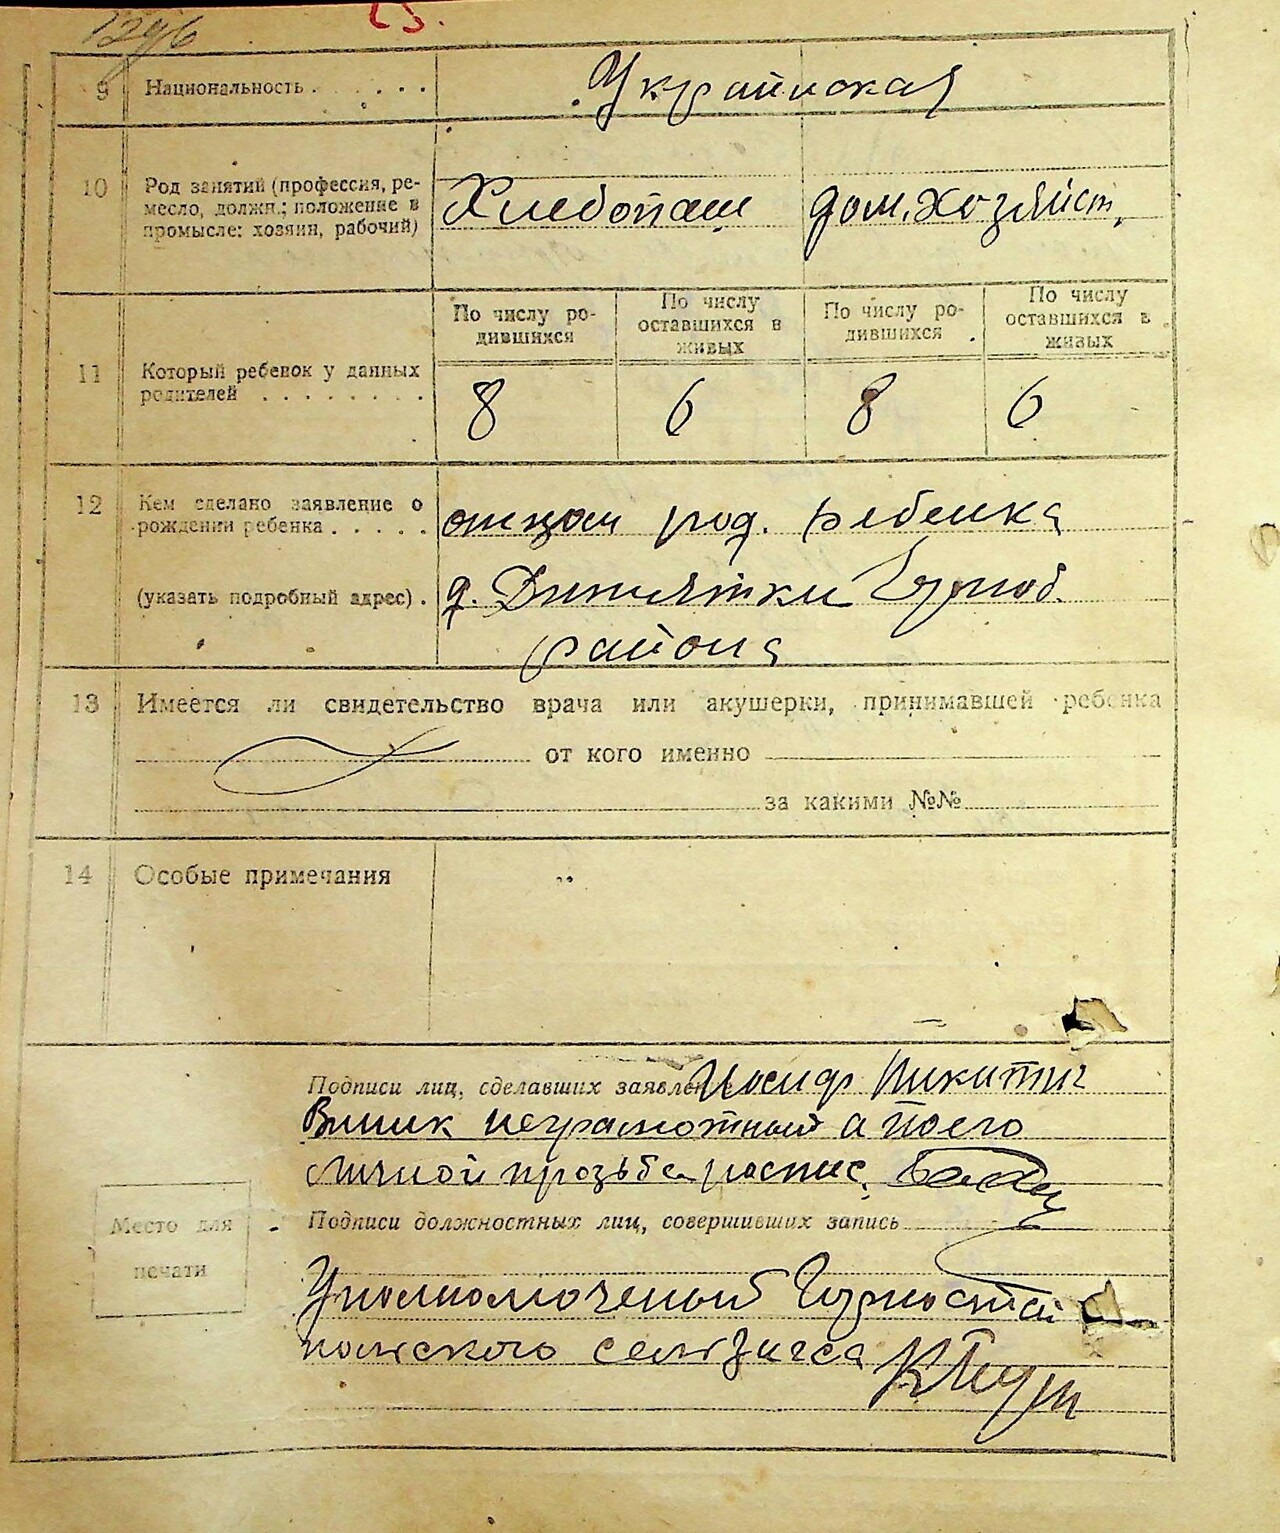 1296
23.
9 Национальность . . . . . . Украинская
10 Род занятий (профессия, ре-
месло, должн.; положение в
промысле: хозяин, рабочий)
Хлебопаш дом. хозяйст.
По числу ро-
дившихся
По числу
оставшихся в
живых
По числу ро-
дившихся
По числу
оставшихся в
живых
11 Который ребенок у данных
родителей . . . . . . . .
8 6 8 6
12 Кем сделано заявление о
рождении ребенка . . . . .
отцом род. ребенка
(указать подробный адрес) .
д. Дитятки Чорноб.
района
13 Имеется ли свидетельство врача или акушерки, принимавшей ребенка
от кого именно
за какими №№
14 Особые примечания
Подписи лиц, сделавших заявление Иосиф Никитин
неграмотный а по его
личной прозьбе роспис.
Подписи должностных лиц, совершивших запись
Место для
печати
Уполномоченый Горностай
польского